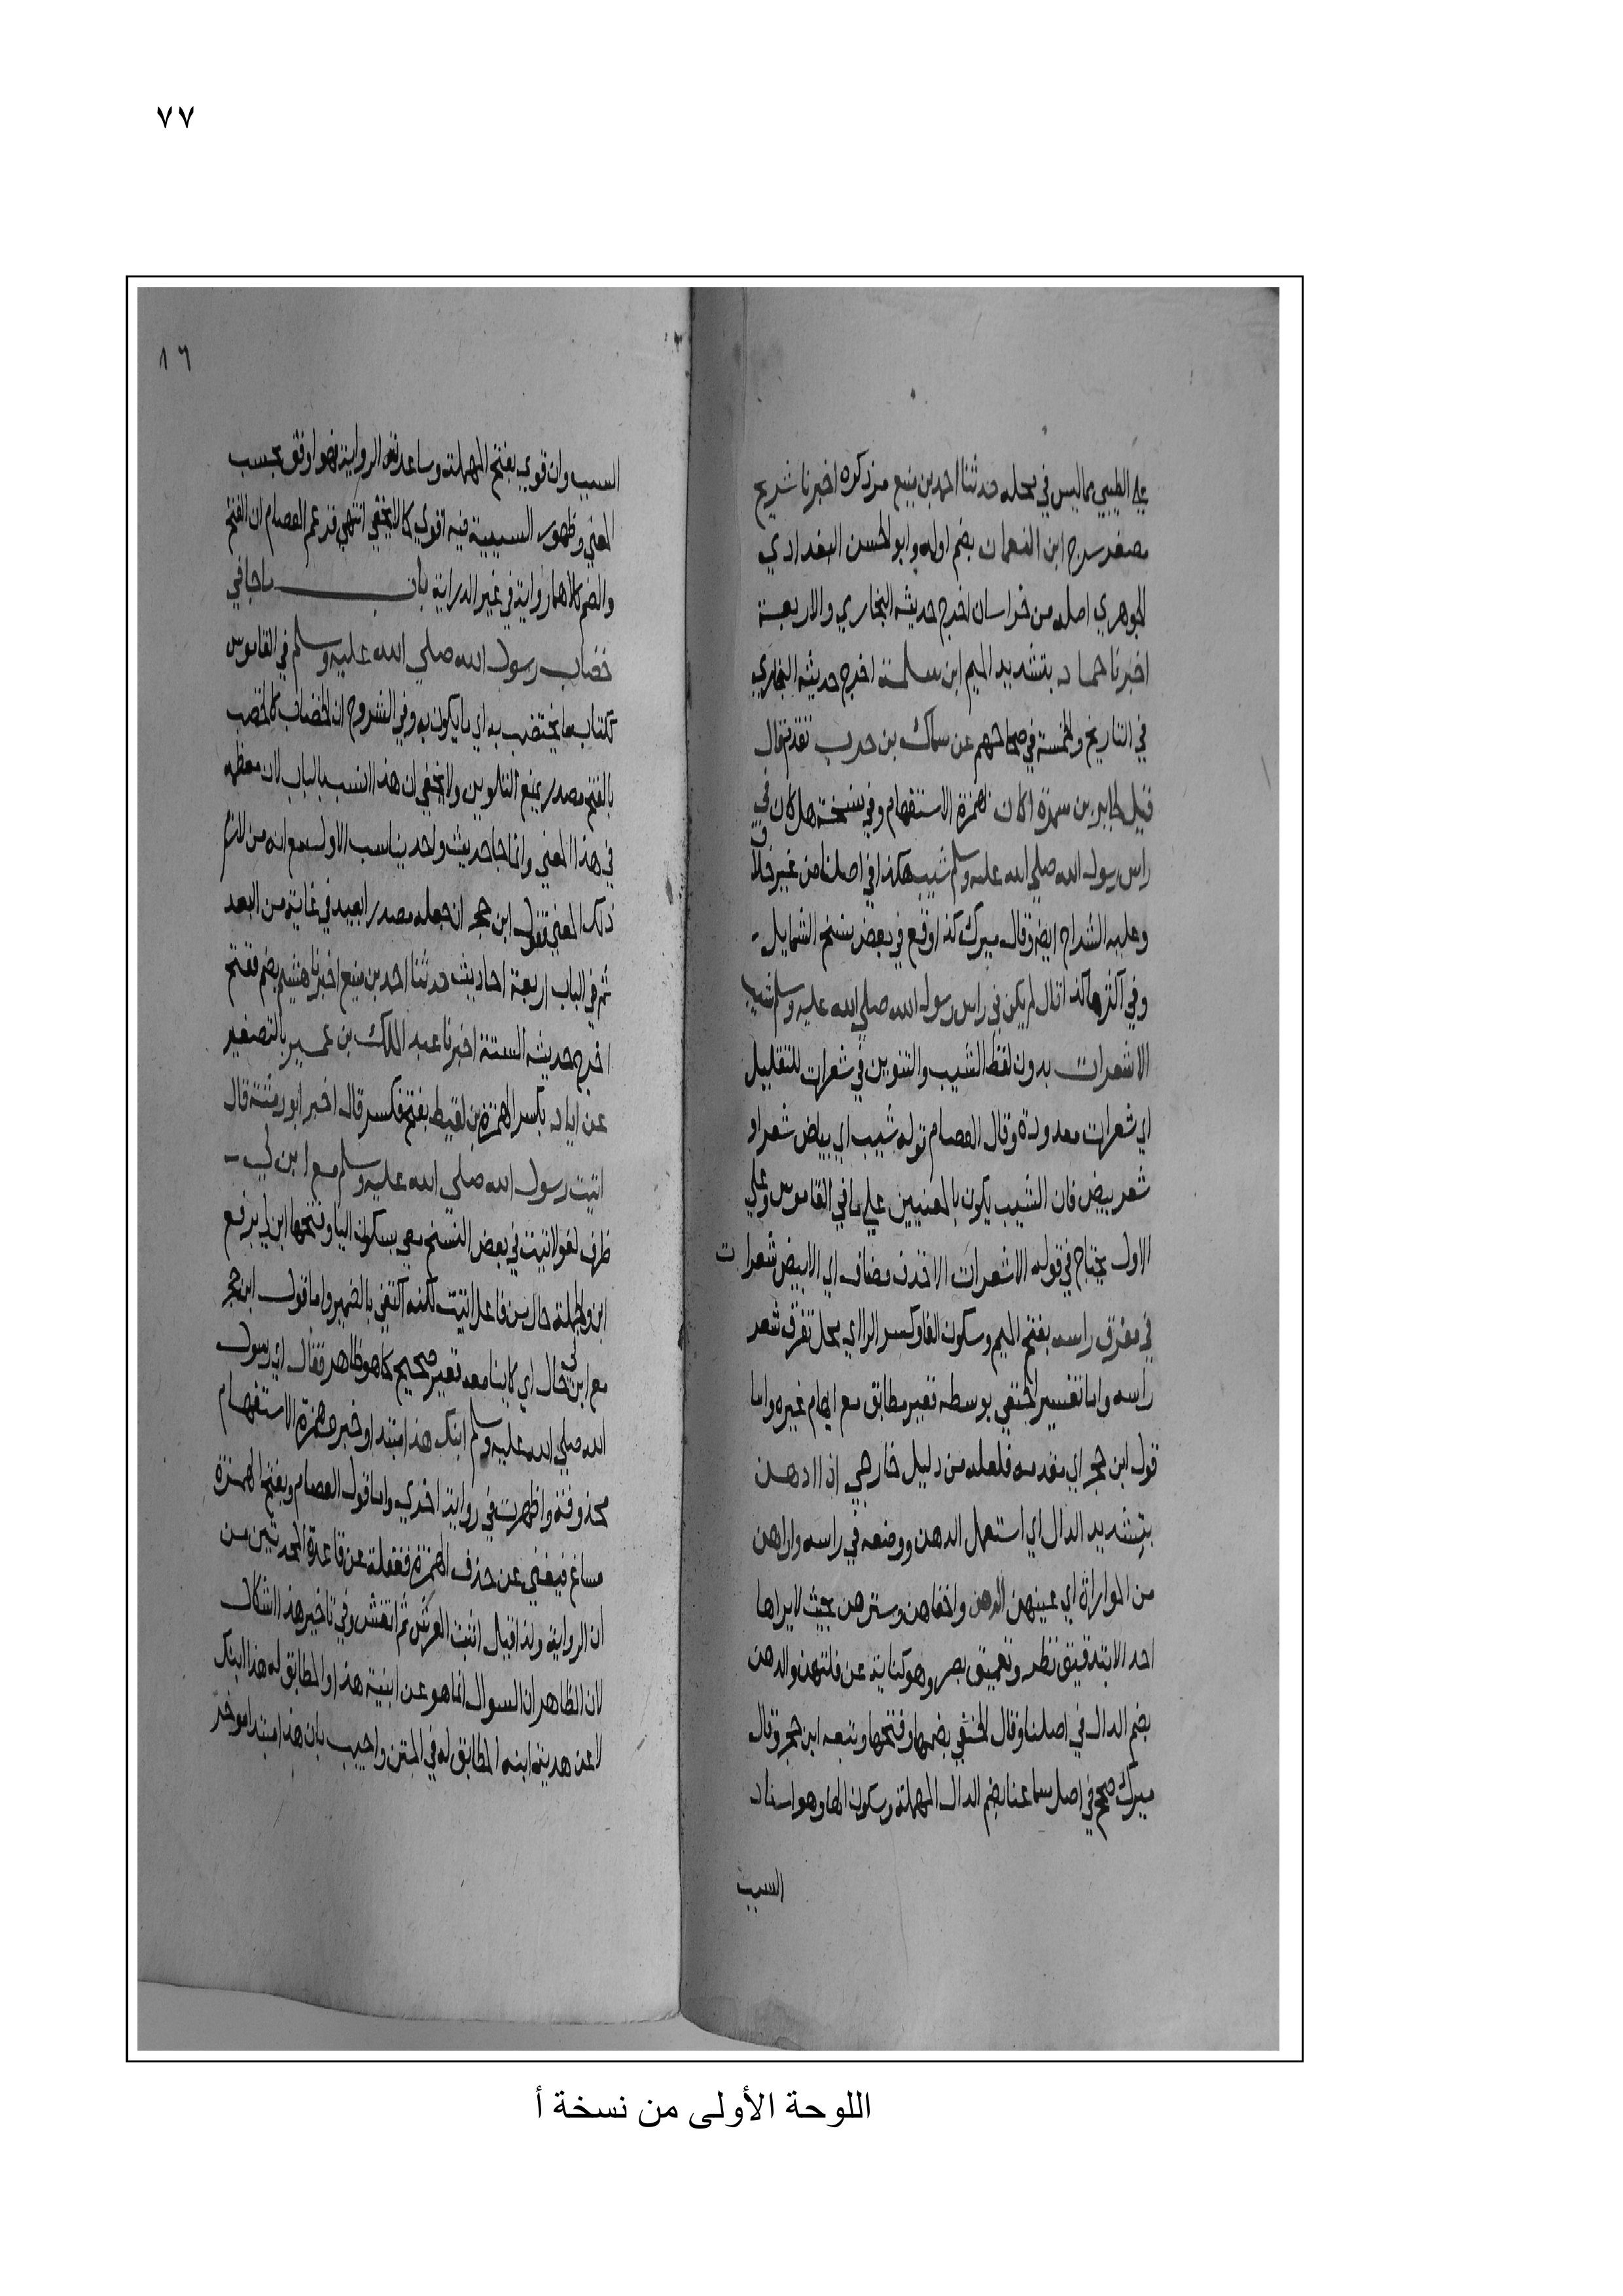 ٧٧
علي الطيبي مما ليس في محله حدثنا احمد بن منيع مر ذكره اخبرنا شريح
مصغر سرج ابن النعمان بضم اوله وابو الحسن البغدادي
الجوهري اصله من خراسان اخرج حديثه البخاري والاربعة
اخبرنا حماد بتشديد الميم ابن سلمة اخرج حديثه البخاري
في التاريخ والخمسة في صحاحهم عن سماك بن حرب تقدم قال
قيل لجابر بن سمرة اكان بهمزة الاستفهام وفي نسخة هل كان في
راس رسول الله صلي الله عليه وسلم شيب هكذا في اصلنا من غير خلاف
وعليه الشراح ايضا وقال ميرك كذا وقع في بعض نسخ الشمايل
وفي اكثرها كذا قال لم يكن في راس رسول الله صلي الله عليه وسلم شيب
الا شعرات بدون لفظ الشيب والتنوين في شعرات للتقليل
اي شعرات معدودة وقال العصام قوله شيب اي بياض شعر او
شعر بيض فان الشيب يكون بالمعنيين علي ما في القاموس وعلي
الاول يحتاج في قوله الا شعرات الا حذف مضاف اي الا بيض شعرات
في مفرق راسه بفتح الميم وسكون الفا وكسر الرا اي محل تفرق شعر
راسه واما تفسير الحنفي بوسطه فغير مطابق مع ايهام غيره واما
قول ابن حجر اي مقدمه فلعله من دليل خارجي اذا ادهن
بتشديد الدال اي استعمل الدهن ووضعه في راسه واراهن
من المواراة اي غيبهن الدهن واخفاهن وسترهن بحيث لا يراها
احد الا بتدقيق نظر وتعميق بصر وهو كناية عن قلتهن والدهن
بضم الدال في اصلنا وقال الحنفي بضمها وفتحها وتبعه ابن حجر وقال
ميرك صحح في اصل سماعنا بضم الدال المهملة وسكون الها وهو اسناد
السبب
١٦
السبب وان قوي بفتح المهملة وساعدته الرواية فهو اوفق بحسب
المعني وظهور السببية فيه اقوي كما لا يخفي انتهي فزعم العصام ان الفتح
والضم كلاهما رواية في غير الدراية باب ما جا في
خضاب رسول الله صلي الله عليه وسلم في القاموس
ككتاب ما يختضب به اي ما يكون به وفي الشروح ان الخضاب كالخضب
بالفتح مصدر بمعني التلوين ولا يخفي ان هذا انسب بالباب لان معظمه
في هذا المعني وانما جا حديث واحد يناسب الاول مع انه من لازم
ذلك المعني فقول ابن حجر ان جعله مصدرا بعيد في غاية من البعد
ثم في الباب اربعة احاديث حدثنا احمد بن منيع اخبرنا هشيم بضم ففتح
اخرج حديثه الستة اخبرنا عبد الملك بن عمير بالتصغير
عن اياد بكسر الهمزة بن لقيط بفتح فكسر قال اخبر ابو رمثة قال
اتيت رسول الله صلي الله عليه وسلم مع ابن لي
ظرف لقوله اتيت في بعض النسخ معي بسكون اليا وفتحها ابن لي برفع
ابن والجملة حال من فاعل اتيت لكنه اكتفي بالضمير واما قول ابن حجر
مع ابن لي حال اي كاينا معه فغير صحيح كما هو ظاهر فقال اي رسول
الله صلي الله عليه وسلم ابنك هذا مبتدا وخبر وهمزة الاستفهام
محذوفة واظهرت في رواية اخري واما قول العصام وبفتح الهمزة
مساغ فيغني عن حذف الهمزة فغفلة عن قاعدة المحدثين من
ان الرواية ولذا قيل اثبت العرش ثم انقش وفي تاخير هذا اشكال
لان الظاهر ان السوال انما هو عن ابنية هذا والمطابق له هذا ابنك
لا عن هذية ابنه المطابق له في المتن واجيب بان هذا مبتدا موخر
اللوحة الأولى من نسخة أ